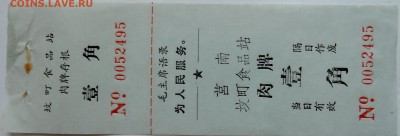 coins.lave.ru
坟町食品站
肉牌存根
壹角
№ 0052495
毛主席语录
为人民服务。
莒南
坟町食品站
肉牌
壹角
当日有效
隔日作废
№ 0052495